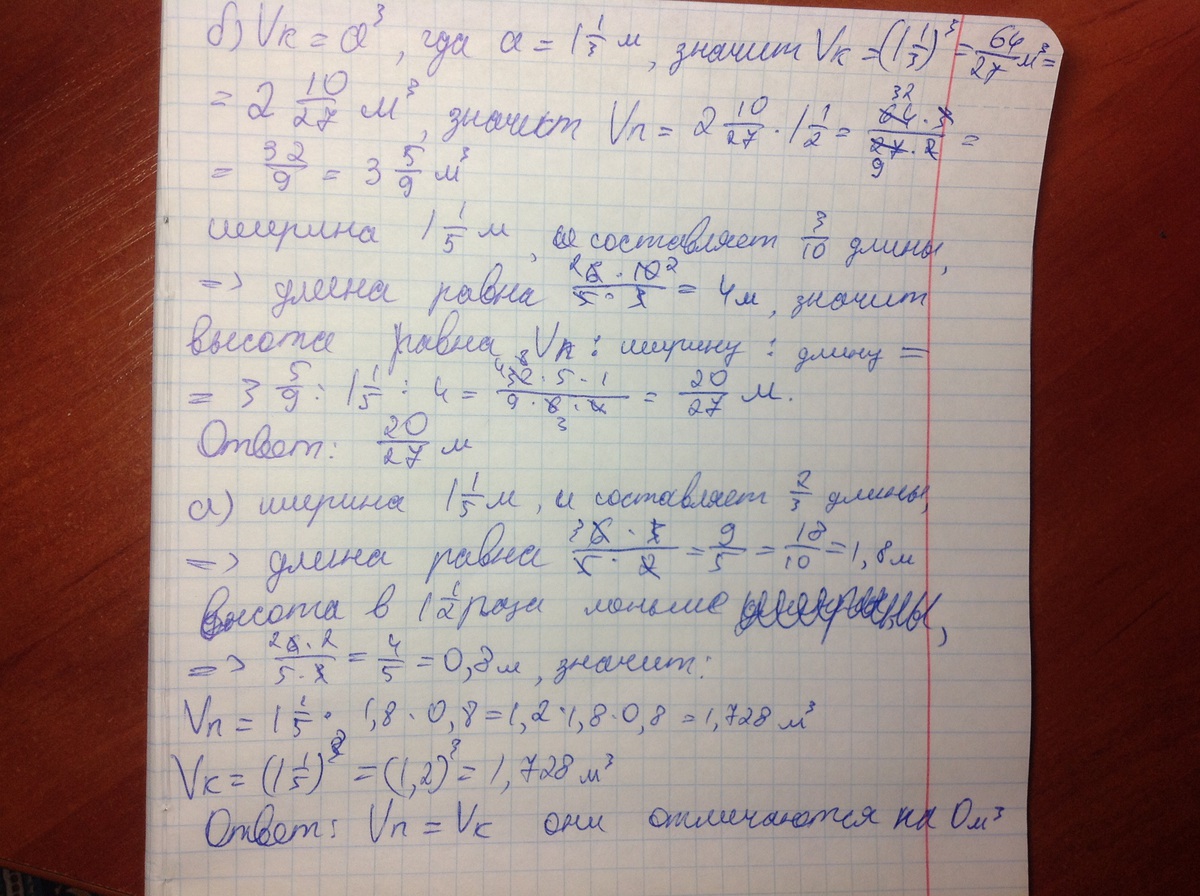 б) Vк = a³, где a = 1 1/3 м, значит Vк = (1 1/3)³ = 64/27 м³ =
= 2 10/27 м³, значит Vп = 2 10/27 · 1 1/2 = 64 · 3 / 27 · 2 =
= 32/9 = 3 5/9 м³
ширина 1 1/5 м, и составляет 3/10 длины,
=> длина равна 6 · 10 / 5 · 3 = 4 м, значит
высота равна Vп : ширину : длину =
= 3 5/9 : 1 1/5 : 4 = 32 · 5 · 1 / 9 · 6 · 4 = 20/27 м.
Ответ: 20/27 м
а) ширина 1 1/5 м, и составляет 2/3 длины,
=> длина равна 6 · 3 / 5 · 2 = 9/5 = 18/10 = 1,8 м
Высота в 1 1/2 раза меньше ширины,
=> 6 · 2 / 5 · 3 = 4/5 = 0,8 м, значит:
Vп = 1 1/5 · 1,8 · 0,8 = 1,2 · 1,8 · 0,8 = 1,728 м³
Vк = (1 1/5)³ = (1,2)³ = 1,728 м³
Ответ: Vп = Vк они отличаются на 0 м³